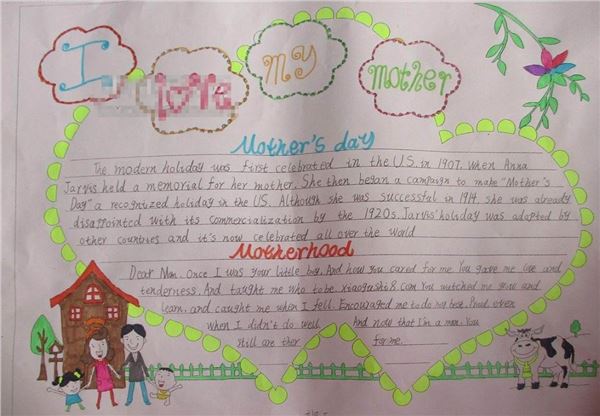 I love my mother
Mother's day
The modern holiday was first celebrated in the U.S. in 1907, when Anna
Jarvis held a memorial for her mother. She then began a campaign to make "Mother's
Day" a recognized holiday in the US. Although she was successful in 1914, she was already
disappointed with its commercialization by the 1920s. Jarvis' holiday was adopted by
other countries and it's now celebrated all over the world
Motherhood
Dear Mom. Once I was your little boy. And how you cared for me. You gave me love and
tenderness. And taught me who to be. Xiaogushi8.Com You watched me grow and
learn. and caught me when I fell. Encouraged me to do my best. Proud even
when I didn't do well. And now that I'm a man. You
still are ther for me.